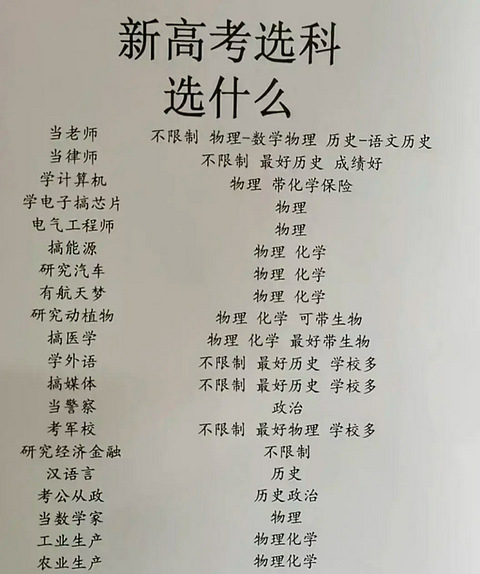 新高考选科
选什么
当老师 不限制 物理-数学物理 历史-语文历史
当律师 不限制 最好历史 成绩好
学计算机 物理 带化学保险
学电子搞芯片 物理
电气工程师 物理
搞能源 物理 化学
研究汽车 物理 化学
有航天梦 物理 化学
研究动植物 物理 化学 可带生物
搞医学 物理 化学 最好带生物
学外语 不限制 最好历史 学校多
搞媒体 不限制 最好历史 学校多
当警察 政治
考军校 不限制 最好物理 学校多
研究经济金融 不限制
汉语言 历史
考公从政 历史政治
当数学家 物理
工业生产 物理化学
农业生产 物理化学